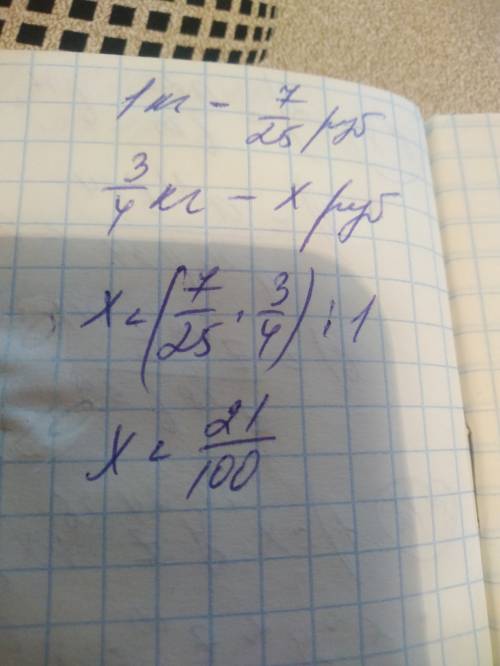 1 кг - 7/25 руб
3/4 кг - x руб
x = (7/25 · 3/4) : 1
x = 21/100